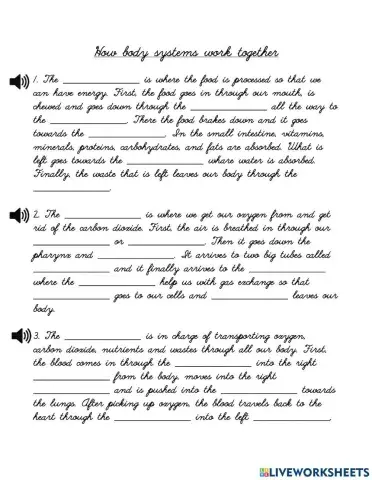 How body systems work together
1. The _______________ is where the food is processed so that we
can have energy. First, the food goes in through our mouth, is
chewed and goes down through the _______________ all the way to
the _______________. There the food brakes down and it goes
towards the _______________. In the small intestine, vitamins,
minerals, proteins, carbohydrates, and fats are absorbed. What is
left goes towards the _______________ whare water is absorbed.
Finally, the waste that is left leaves our body through the
_______________.
2. The _______________ is where we get our oxygen from and get
rid of the carbon dioxide. First, the air is breathed in through our
_______________ or _______________. Then it goes down the
pharynx and _______________. It arrives to two big tubes called
_______________ and it finally arrives to the _______________
where the _______________ help us with gas exchange so that
_______________ goes to our cells and _______________ leaves our
body.
3. The _______________ is in charge of transporting oxygen,
carbon dioxide, nutrients and wastes through all our body. First,
the blood comes in through the _______________ into the right
_______________ from the body, moves into the right
_______________ and is pushed into the _______________ towards
the lungs. After picking up oxygen, the blood travels back to the
heart through the _______________ into the left _______________,
LIVEWORKSHEETS